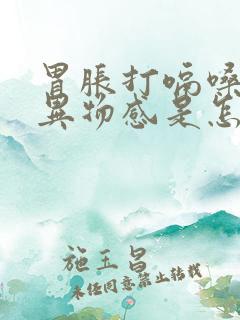 胃胀打嗝嗓
异物感是怎
施玉昌
未经同意禁止转载